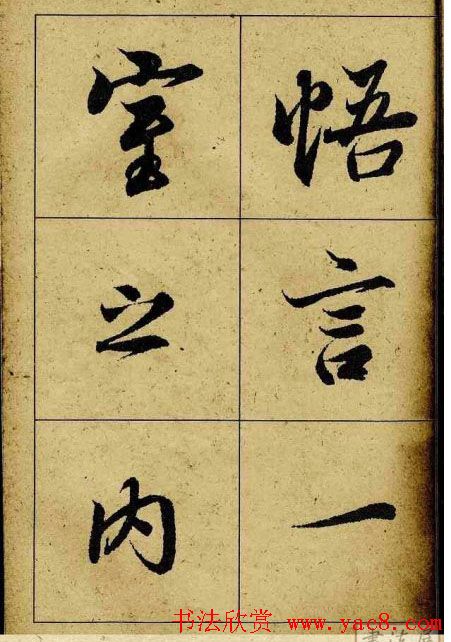 悟言一
室之内
书法欣赏 www.yac8.com